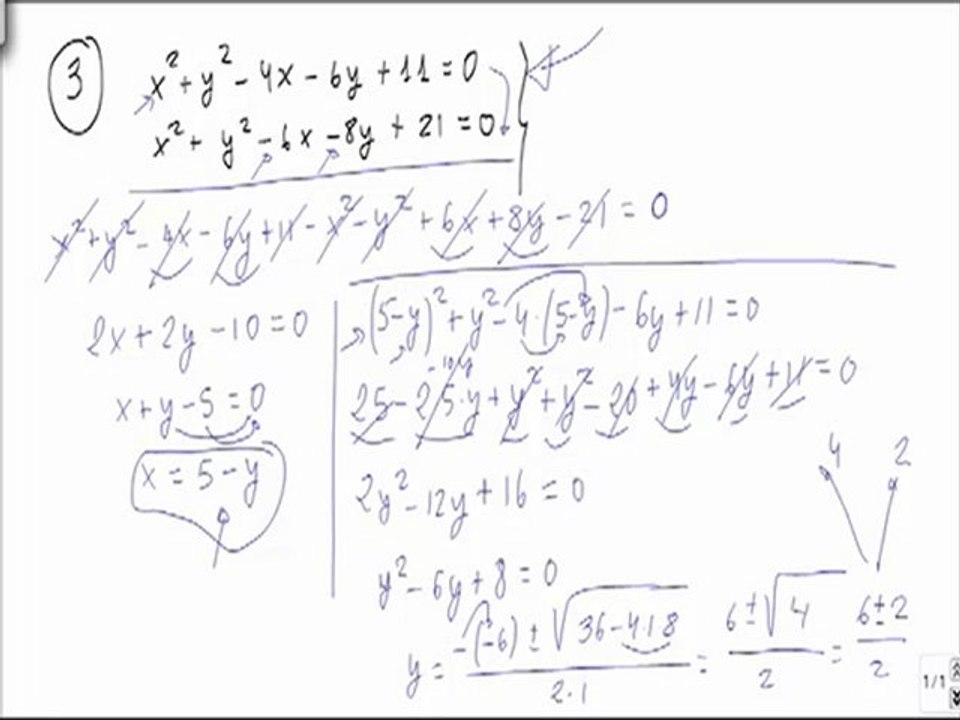 3
x² + y² - 4x - 6y + 11 = 0
x² + y² - 6x - 8y + 21 = 0
x² + y² - 4x - 6y + 11 - x² - y² + 6x + 8y - 21 = 0
2x + 2y - 10 = 0
x + y - 5 = 0
x = 5 - y
(5-y)² + y² - 4·(5-y) - 6y + 11 = 0
-10y
25 - 2·5·y + y² + y² - 20 + 4y - 6y + 11 = 0
2y² - 12y + 16 = 0
y² - 6y + 8 = 0
4 2
y = (-(-6) ± √(36 - 4·1·8))/(2·1) = (6 ± √4)/2 = (6 ± 2)/2
1/1